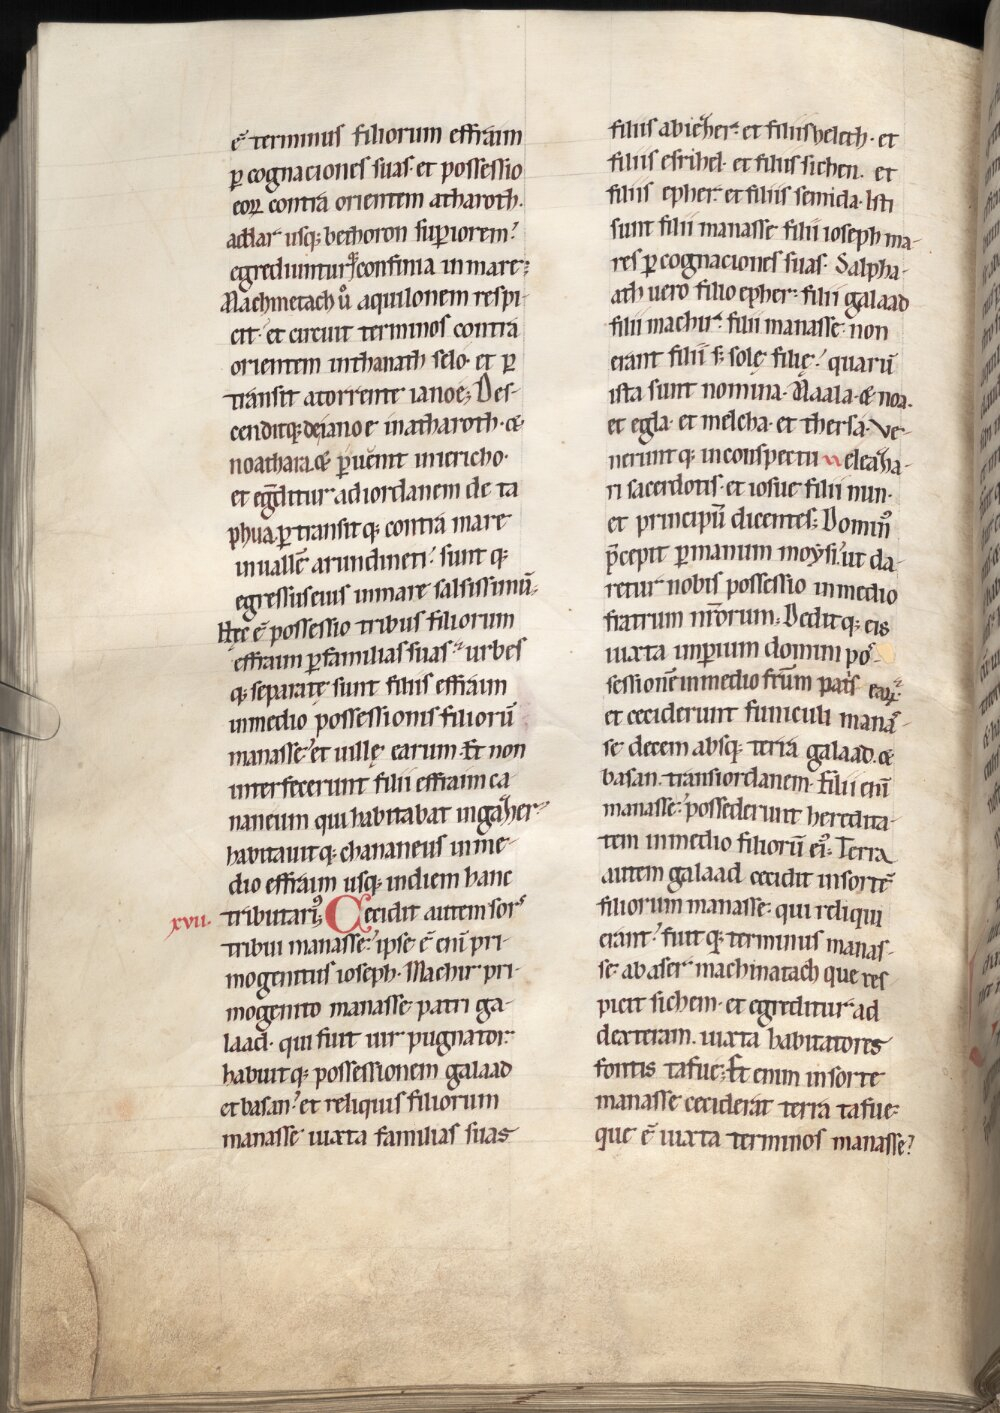 ē terminus filiorum effraim
ꝑ cognaciones suas· et possessio
eoꝝ contra orientem atharoth·
addar usq; bethoron superiorem?
egrediunturq; confinia in mare:
Machmetach ů aquilonem respi-
cit· et circuit terminos contra
orientem inthanath selo· et ꝑ
transit atorrente ianoe; Des-
cenditq; deianoe inatharoth· &
noathara· & ꝑuēnit iniericho·
et eḡditur adiordanem de ta
phua· ꝑtransit q; contra mare
inuallē arundineti? sunt q;
egressus eius inmare salsissimū;
Hęc ē possessio tribus filiorum
effraim ꝑfamilias suas· urbes
q; separatę sunt filiis effraim
inmedio possessionis filiorū
manasse· et uillę earum· Et non
interfecerunt filii effraim ca
naneum qui habitabat ingaher·
habitauit q; chananeus inme-
dio effraim usq; indiem hanc
xvii· tributariꝰ; Cecidit autem sors
tribui manasse· ipse ē enī pri-
mogenitus ioseph· Machir pri-
mogenito manasse patri ga-
laad· qui fuit uir pugnator:
habuit q; possessionem galaad
et basan· et reliquis filiorum
manasse iuxta familias suas
filiis abieher· et filiis helech· et
filiis esrihel· et filiis sichen· et
filiis epher· et filiis semida· Isti
sunt filii manasse filii ioseph ma-
res ꝑ cognaciones suas· Salpha-
ath uero filio epher· filii galaad
filii machir· filii manasse· non
erant filii s; sole filię? quarū
ista sunt nomina· Maala· & noa·
et egla· et melcha· et thersa· Ve-
nerunt q; inconspectu eleaha-
ri sacerdotis· et iosue filii nun·
et principū dicentes; Dominꝰ
p̄cepit ꝑ manum moysi· ut da-
retur nobis possessio inmedio
fratrum nr̄orum; Dedit q; eis
iuxta imꝑium domini pos
sessionē inmedio frūm patris earꝝ·
et ceciderunt funiculi manas-
se decem absq; terra galaad· &
basan· transiordanem· Filii enī
manasse· possederunt heredita-
tem inmedio filiorū eiꝰ· Terra
autem galaad cecidit insortē
filiorum manasse· qui reliqui
erant· fuit q; terminus manas-
se· abaser machinatach que res-
picit sichem· et egreditur ad
dexteram· iuxta habitatores
fontis tafue; Et enim insorte
manasse ceciderat terra tafue:
que ē iuxta terminos manasse?